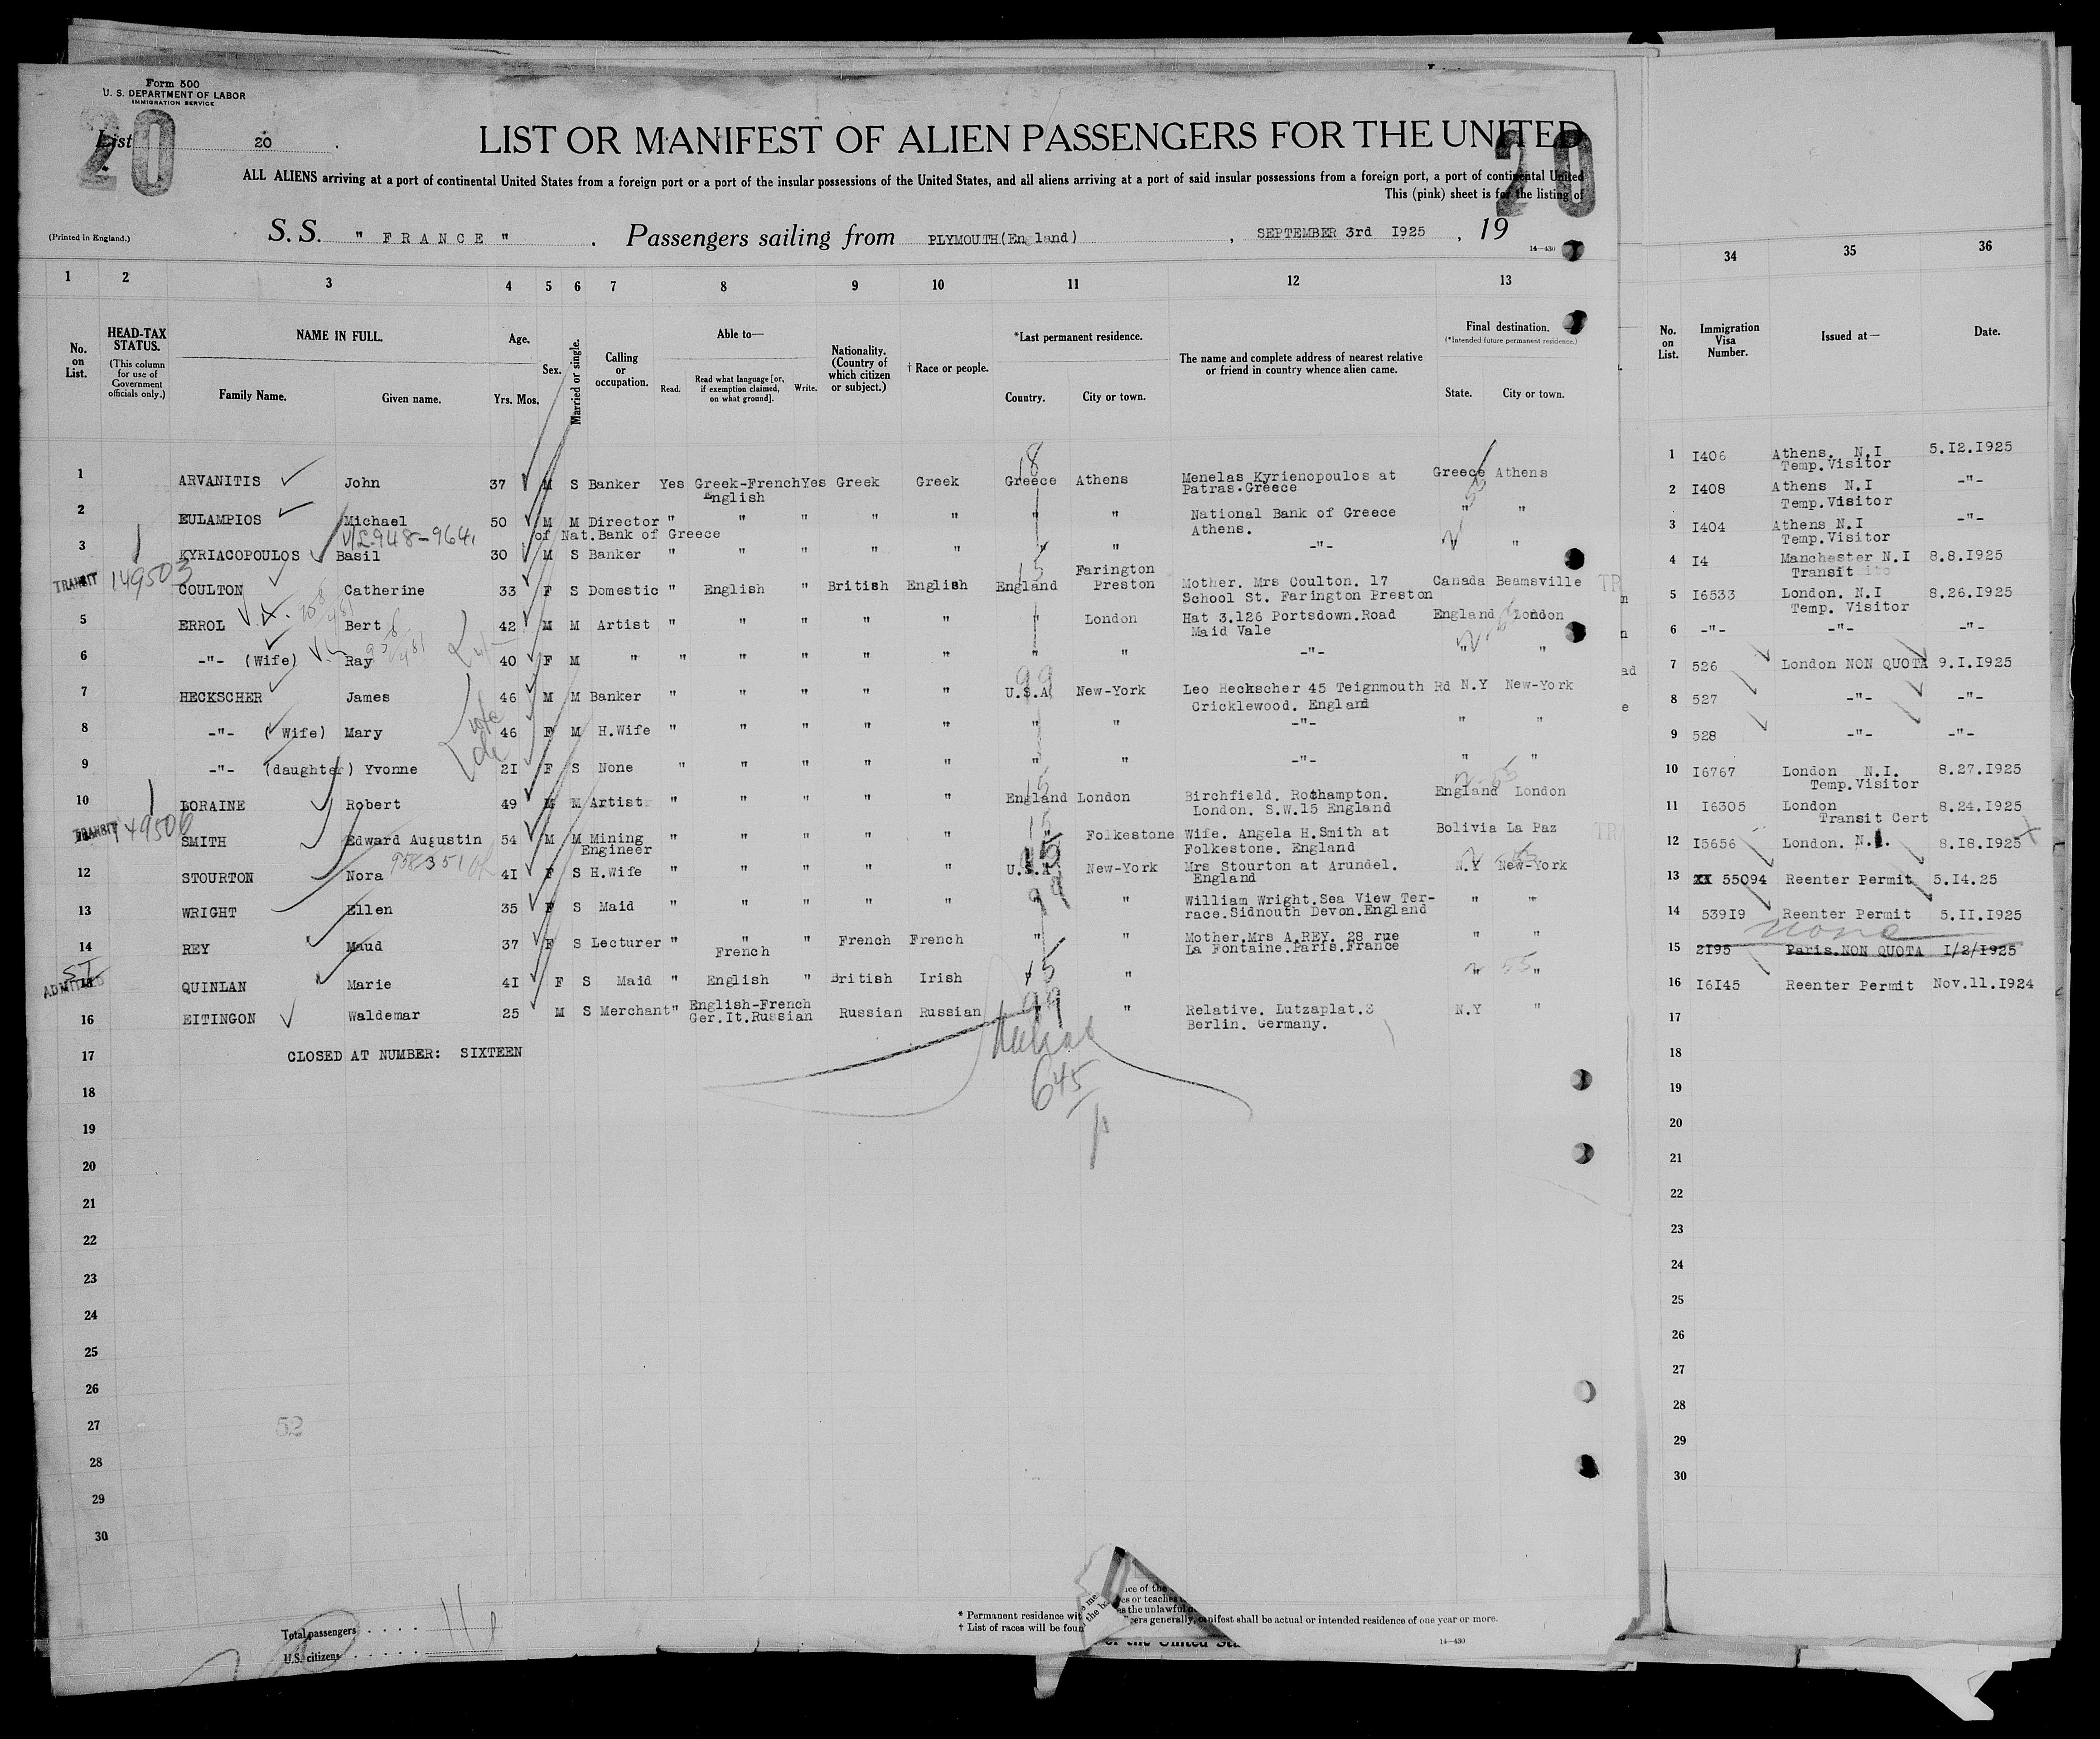 Form 500
U. S. DEPARTMENT OF LABOR
IMMIGRATION SERVICE
List 20
20
20
LIST OR MANIFEST OF ALIEN PASSENGERS FOR THE UNITED
ALL ALIENS arriving at a port of continental United States from a foreign port or a port of the insular possessions of the United States, and all aliens arriving at a port of said insular possessions from a foreign port, a port of continental United
This (pink) sheet is for the listing of
(Printed in England.)
S. S. " FRANCE " . Passengers sailing from PLYMOUTH(England) , SEPTEMBER 3rd I925 , 19
14—430
1 2 3 4 5 6 7 8 9 10 11 12 13 34 35 36
No. on List.
HEAD-TAX STATUS.
(This column for use of Government officials only.)
NAME IN FULL.
Family Name. Given name.
Age.
Yrs. Mos.
Sex.
Married or single.
Calling or occupation.
Able to—
Read. Read what language [or, if exemption claimed, on what ground]. Write.
Nationality. (Country of which citizen or subject.)
† Race or people.
*Last permanent residence.
Country. City or town.
The name and complete address of nearest relative or friend in country whence alien came.
Final destination.
(*Intended future permanent residence.)
State. City or town.
No. on List.
Immigration Visa Number.
Issued at—
Date.
1 ARVANITIS John 37 M S Banker Yes Greek-French Yes Greek Greek Greece Athens Menelas Kyrienopoulos at Greece Athens
English Patras.Greece
2 EULAMPIOS Michael 50 M M Director " " " " " " " National Bank of Greece " "
of Nat.Bank of Greece Athens.
3 KYRIACOPOULOS Basil 30 M S Banker " " " " " " " -"- " "
TRANSIT 149503
4 COULTON Catherine 33 F S Domestic " English " British English England Farington Preston Mother. Mrs Coulton. 17 Canada Beamsville
School St. Farington Preston
5 ERROL Bert 42 M M Artist " " " " " " London Hat 3.126 Portsdown.Road England London
Maid Vale
6 -"- (Wife) Ray 40 F M " " " " " " " " -"- " "
7 HECKSCHER James 46 M M Banker " " " " " U.S.A New-York Leo Heckscher 45 Teignmouth Rd N.Y New-York
Cricklewood. England
8 -"- (Wife) Mary 46 F M H.Wife " " " " " " " -"- " "
9 -"- (daughter) Yvonne 2I F S None " " " " " " " -"- " "
10 LORAINE Robert 49 M M Artist " " " " " England London Birchfield. Rothampton. England London
London. S.W.15 England
TRANSIT 149506
11 SMITH Edward Augustin 54 M M Mining Engineer " " " " " " Folkestone Wife. Angela H.Smith at Bolivia La Paz
Folkestone. England
12 STOURTON Nora 4I F S H.Wife " " " " " U.S.A New-York Mrs Stourton at Arundel. N.Y New-York
England
13 WRIGHT Ellen 35 F S Maid " " " " " " " William Wright.Sea View Ter- " "
race.Sidnouth Devon.England
14 REY Maud 37 F S Lecturer " " " French French " " Mother.Mrs A.REY. 28 rue " "
French La Fontaine.Paris.France
ADMITTED
15 QUINLAN Marie 4I F S Maid " English " British Irish " " " "
16 EITINGON Waldemar 25 M S Merchant " English-French Russian Russian " " Relative. Lutzaplat.3 N.Y "
Ger.It.Russian Berlin. Germany.
17 CLOSED AT NUMBER: SIXTEEN
645
18
19
20
21
22
23
24
25
26
27
28
29
30
1 I406 Athens. N.I 5.I2.I925
Temp.Visitor
2 I408 Athens N.I -"-
Temp.Visitor
3 I404 Athens N.I -"-
Temp.Visitor
4 I4 Manchester N.I 8.8.I925
Transit
5 I6533 London. N.I 8.26.I925
Temp. Visitor
6 -"- -"- -"-
7 526 London NON QUOTA 9.I.I925
8 527 -"- -"-
9 528 -"- -"-
10 I6767 London N.I. 8.27.I925
Temp.Visitor
11 I6305 London 8.24.I925
Transit Cert
12 I5656 London. N.I. 8.I8.I925
13 55094 Reenter Permit 5.I4.25
14 539I9 Reenter Permit 5.II.I925
none
15 2I95 Paris.NON QUOTA I/2/I925
16 I6I45 Reenter Permit Nov.11.I924
17
18
19
20
21
22
23
24
25
26
27
28
29
30
Total passengers 16
U.S. citizens
* Permanent residence wit
† List of races will be foun
nifest shall be actual or intended residence of one year or more.
14—430